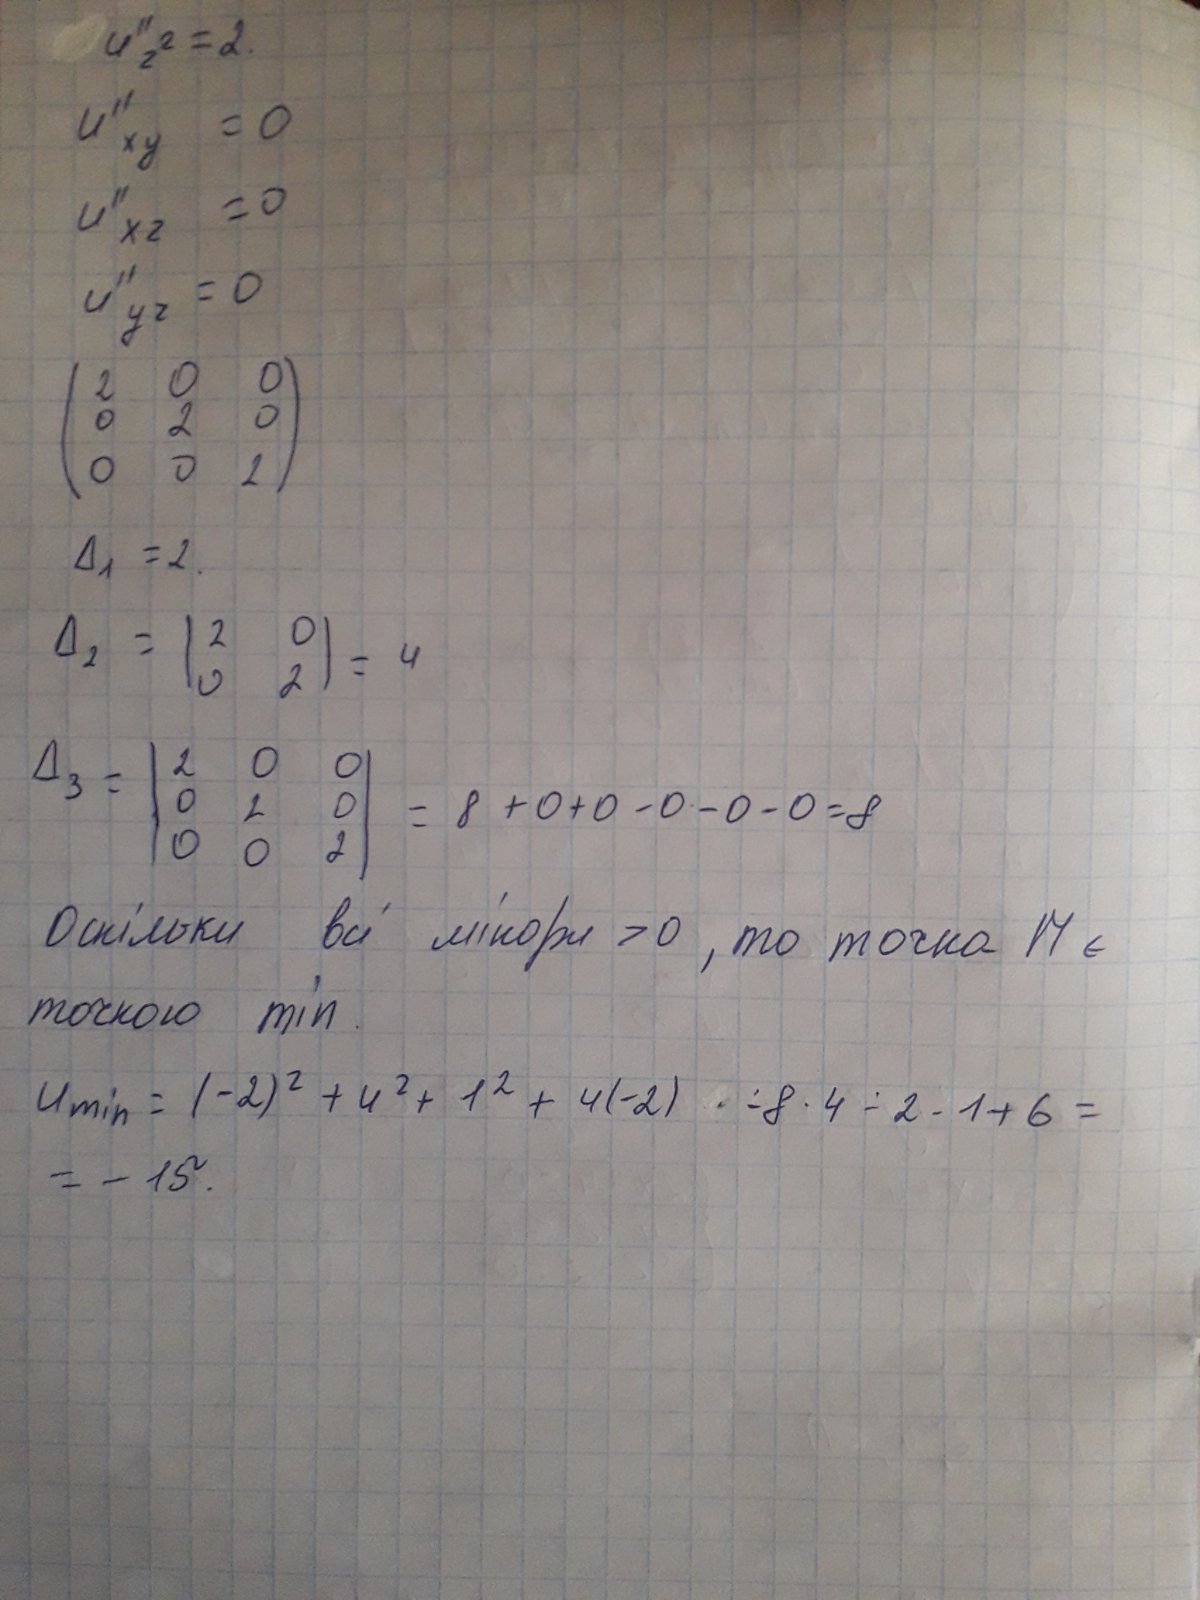 u''z² = 2.
u''xy = 0
u''xz = 0
u''yz = 0
(2 0 0
0 2 0
0 0 2)
Δ1 = 2.
Δ2 = |2 0
0 2| = 4
Δ3 = |2 0 0
0 2 0
0 0 2| = 8 + 0 + 0 - 0 - 0 - 0 = 8
Оскільки всі мінори > 0, то точка М є
точкою min.
umin = (-2)² + 4² + 1² + 4(-2) - 8 · 4 - 2 · 1 + 6 =
= - 15.